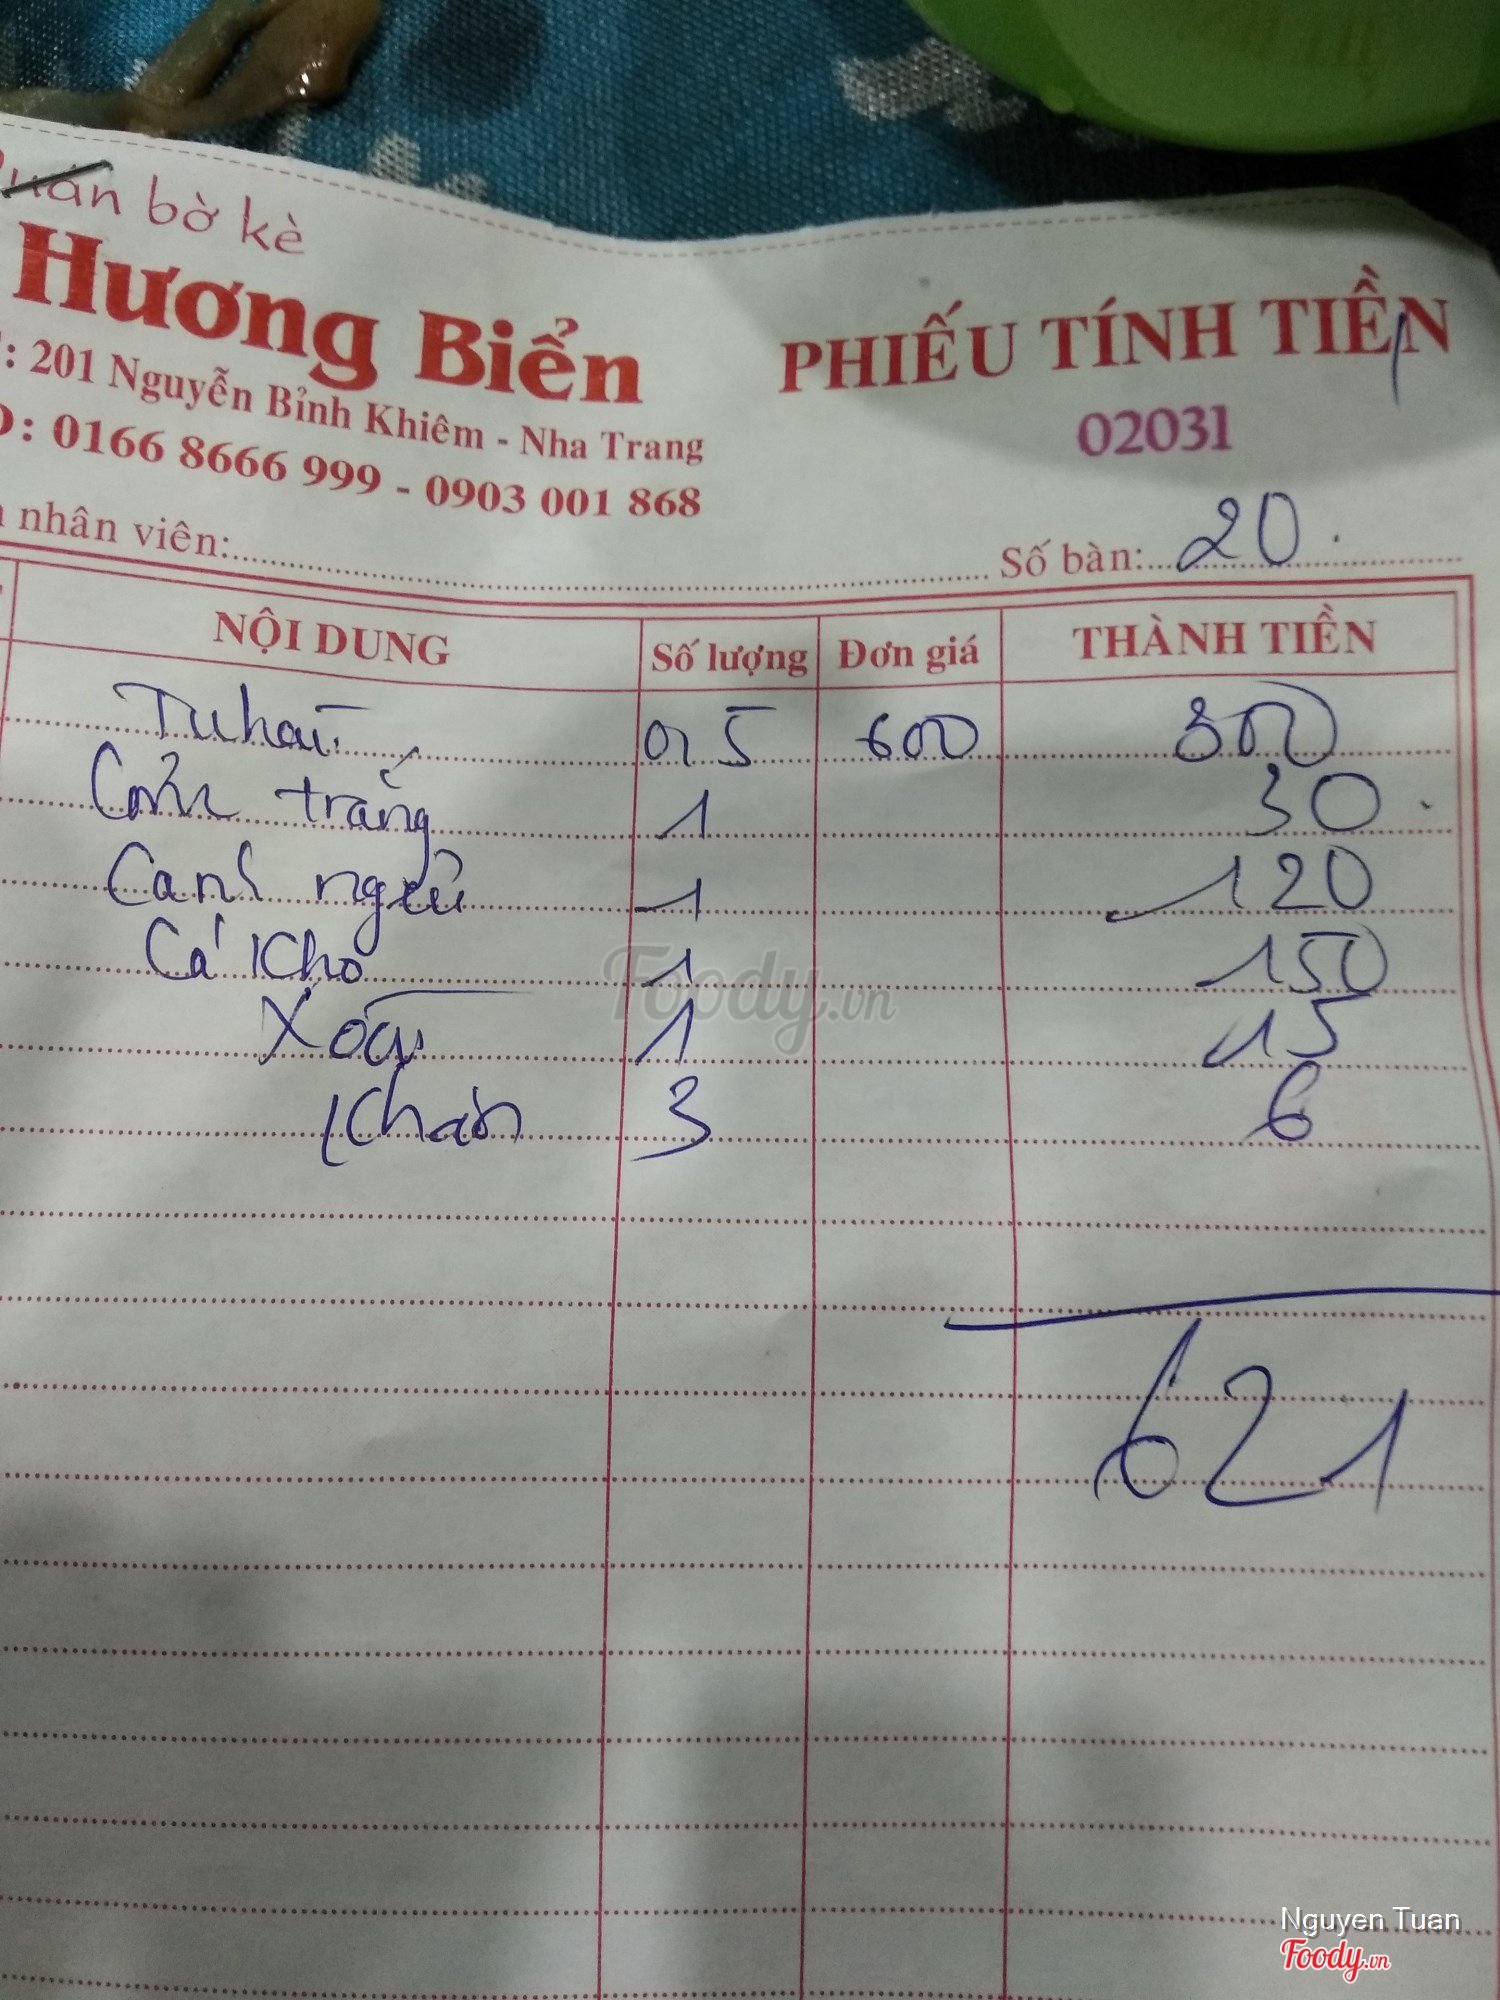 Quán bờ kè
Hương Biển
: 201 Nguyễn Bỉnh Khiêm - Nha Trang
: 0166 8666 999 - 0903 001 868
PHIẾU TÍNH TIỀN
02031
nhân viên:
Số bàn: 20
NỘI DUNG Số lượng Đơn giá THÀNH TIỀN
Tu hài 0,5 600 300
Cơm trắng 1 30
Canh ngêu 1 120
Cá kho 1 150
Xoài 1 15
Khăn 3 6
621
Foody.vn
Nguyen Tuan
Foody.vn